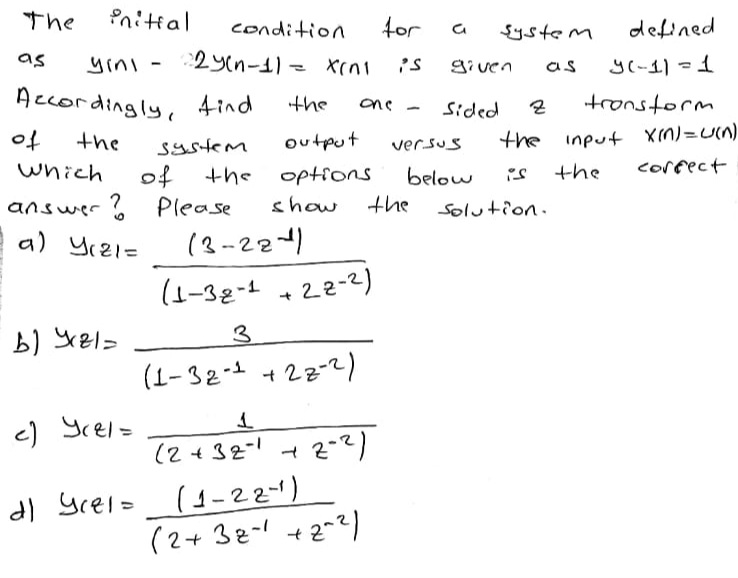 The initial condition for a system defined
as y(n) - 2y(n-1) = x(n) is given as y(-1) = 1
Accordingly, find the one - sided z transform
of the system output versus the input x(n)=u(n)
Which of the options below is the correct
answer? Please show the solution.
a) Y(z)= (3-2z^-1) / (1-3z^-1 + 2z^-2)
b) Y(z)= 3 / (1-3z^-1 + 2z^-2)
c) Y(z)= 1 / (2+3z^-1 + z^-2)
d) Y(z)= (1-2z^-1) / (2+3z^-1 + z^-2)